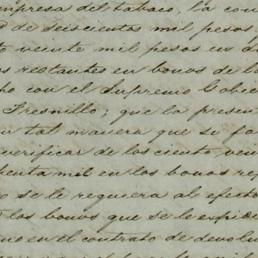 mpresa del tabaco, la con
de seiscientos mil pesos
to veinte mil pesos en d
s restantes en bonos de l
ho con el Supremo Gobie
Fresnillo; que la presen
un tal manera que se fa
verificar de los ciento vein
henta mil en los bonos re
o se le requiera al efecto
los bonos que se le espid
no en el contrato de devolu